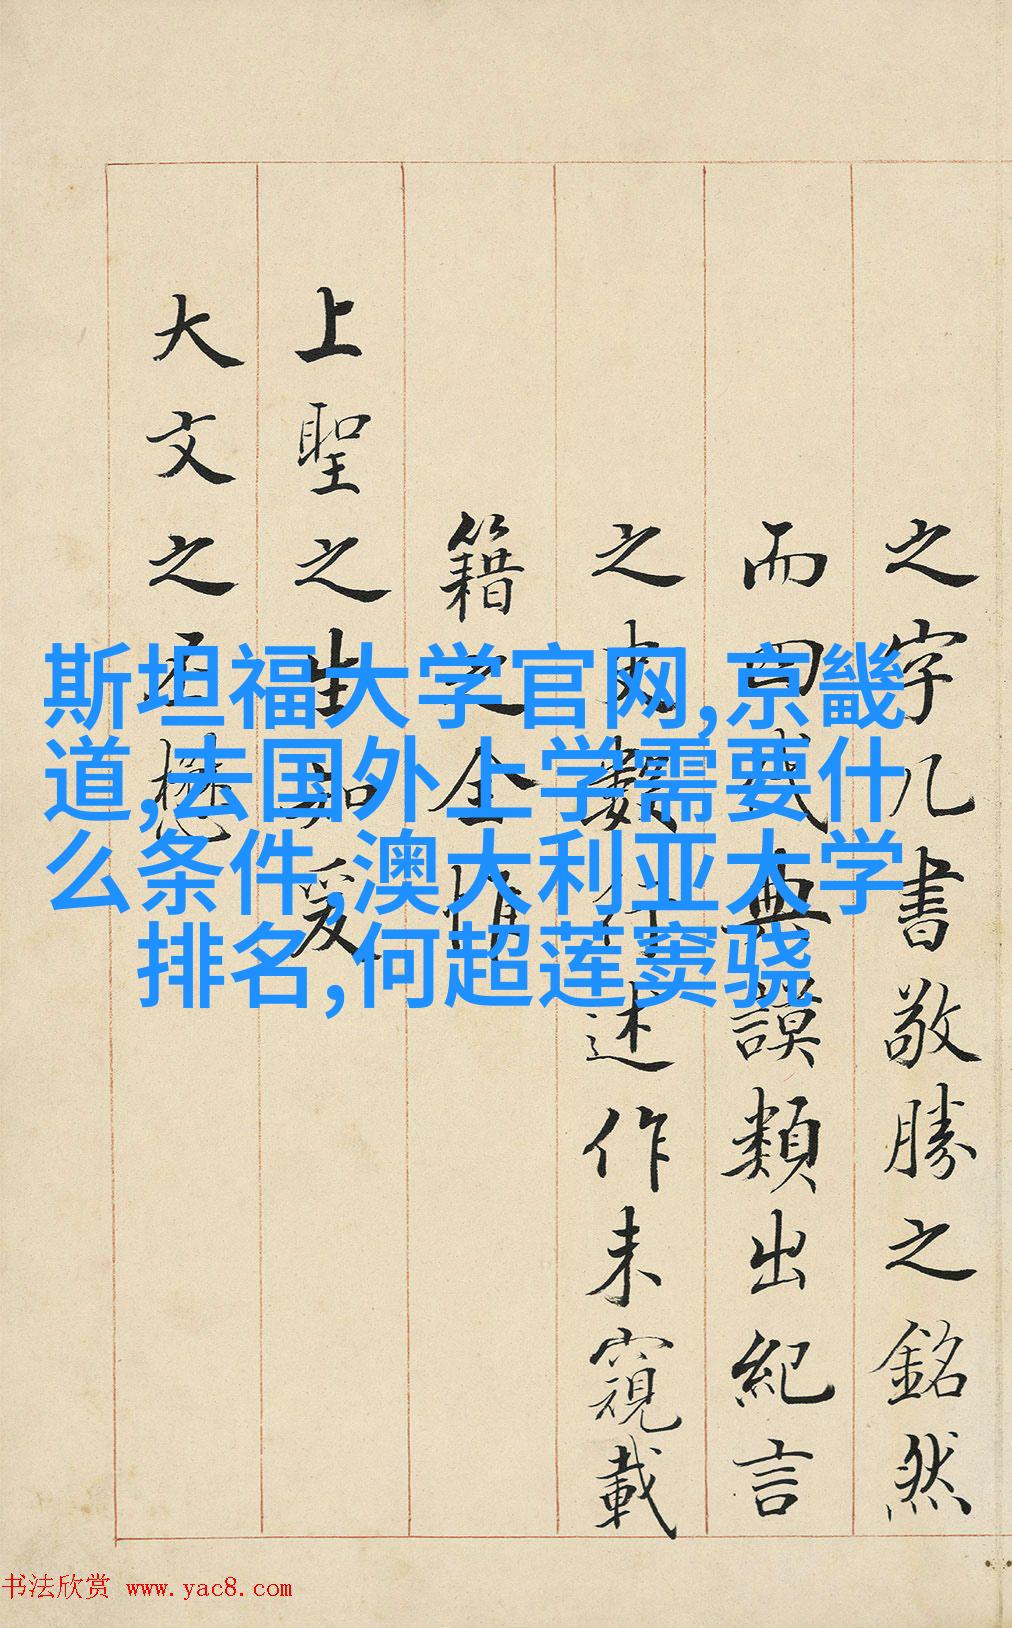 之字几書敬勝之銘然
而曰典謨類出紀言
之述作未窺載
籍之全
上聖之生知爰
大文之丕懋
斯坦福大学官网,京畿
道,去国外上学需要什
么条件,澳大利亚大学
排名,何超莲窦骁
书法欣赏 www.yac8.com